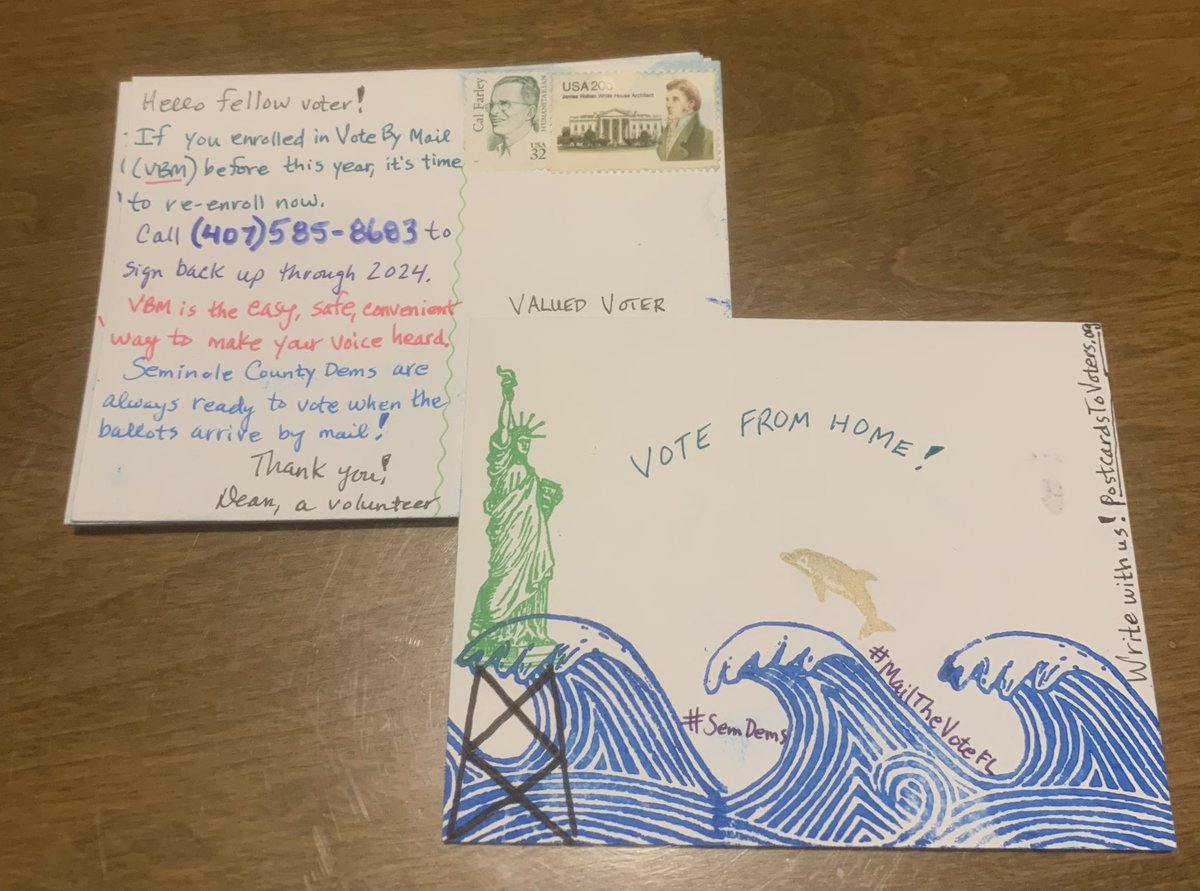 Hello fellow voter!
If you enrolled in Vote By Mail
(VBM) before this year, it's time
to re-enroll now.
Call (407)585-8683 to
sign back up through 2024.
VBM is the easy, safe, convenient
way to make your voice heard.
Seminole County Dems are
always ready to vote when the
ballots arrive by mail!
Thank you!
Dean, a volunteer
Cal Farley
HUMANITARIAN
USA
32
USA 20c
James Hoban White House Architect
VALUED VOTER
VOTE FROM HOME!
#SemDems
#MailTheVoteFL
Write with us! PostcardsToVoters.org